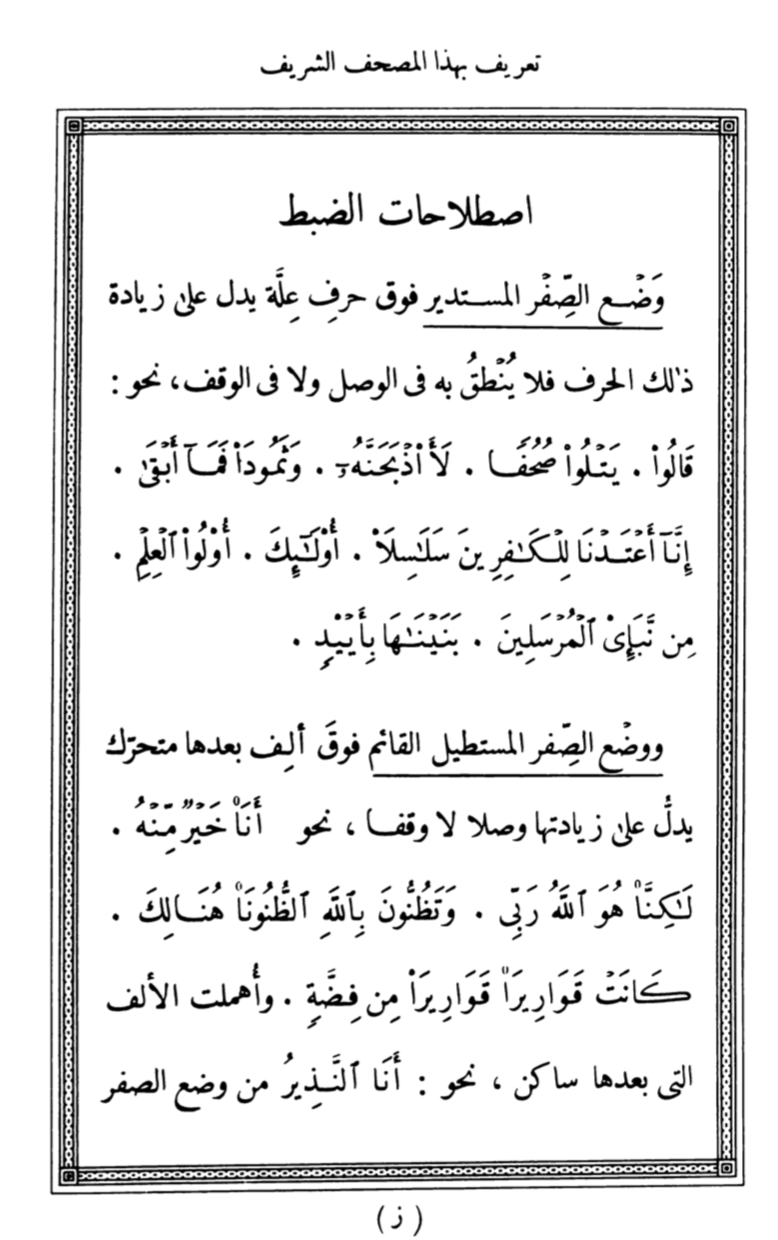 تعريف بهذا المصحف الشريف
اصطلاحات الضبط
وَضْع الصِّفْر المستدير فوق حرفِ عِلَّة يدل على زيادة
ذٰلك الحرف فلا يُنْطَقُ به فى الوصل ولا فى الوقف، نحو :
قَالُوا۟ . يَتْلُوا۟ صُحُفًا . لَأَا۟ذْبَحَنَّهُۥٓ . وَثَمُودَا۟ فَمَآ أَبْقَىٰ .
إِنَّآ أَعْتَدْنَا لِلْكَـٰفِرِينَ سَلَـٰسِلَا۟ . أُو۟لَـٰٓئِكَ . أُو۟لُوا۟ ٱلْعِلْمِ .
مِن نَّبَإِى۟ ٱلْمُرْسَلِينَ . بَنَيْنَـٰهَا بِأَيْي۟دٍ .
ووضْع الصِّفر المستطيل القائم فوقَ ألِف بعدها متحرّك
يدلُّ على زيادتها وصلا لا وقفا ، نحو أَنَا۠ خَيْرٌ مِّنْهُ .
لَـٰكِنَّا۠ هُوَ ٱللَّهُ رَبِّى . وَتَظُنُّونَ بِٱللَّهِ ٱلظُّنُونَا۠ هُنَالِكَ .
كَانَتْ قَوَارِيرَا۠ قَوَارِيرَا۟ مِن فِضَّةٍ . وأُهملت الألف
التى بعدها ساكن ، نحو : أَنَا ٱلنَّذِيرُ من وضع الصفر
( ز )